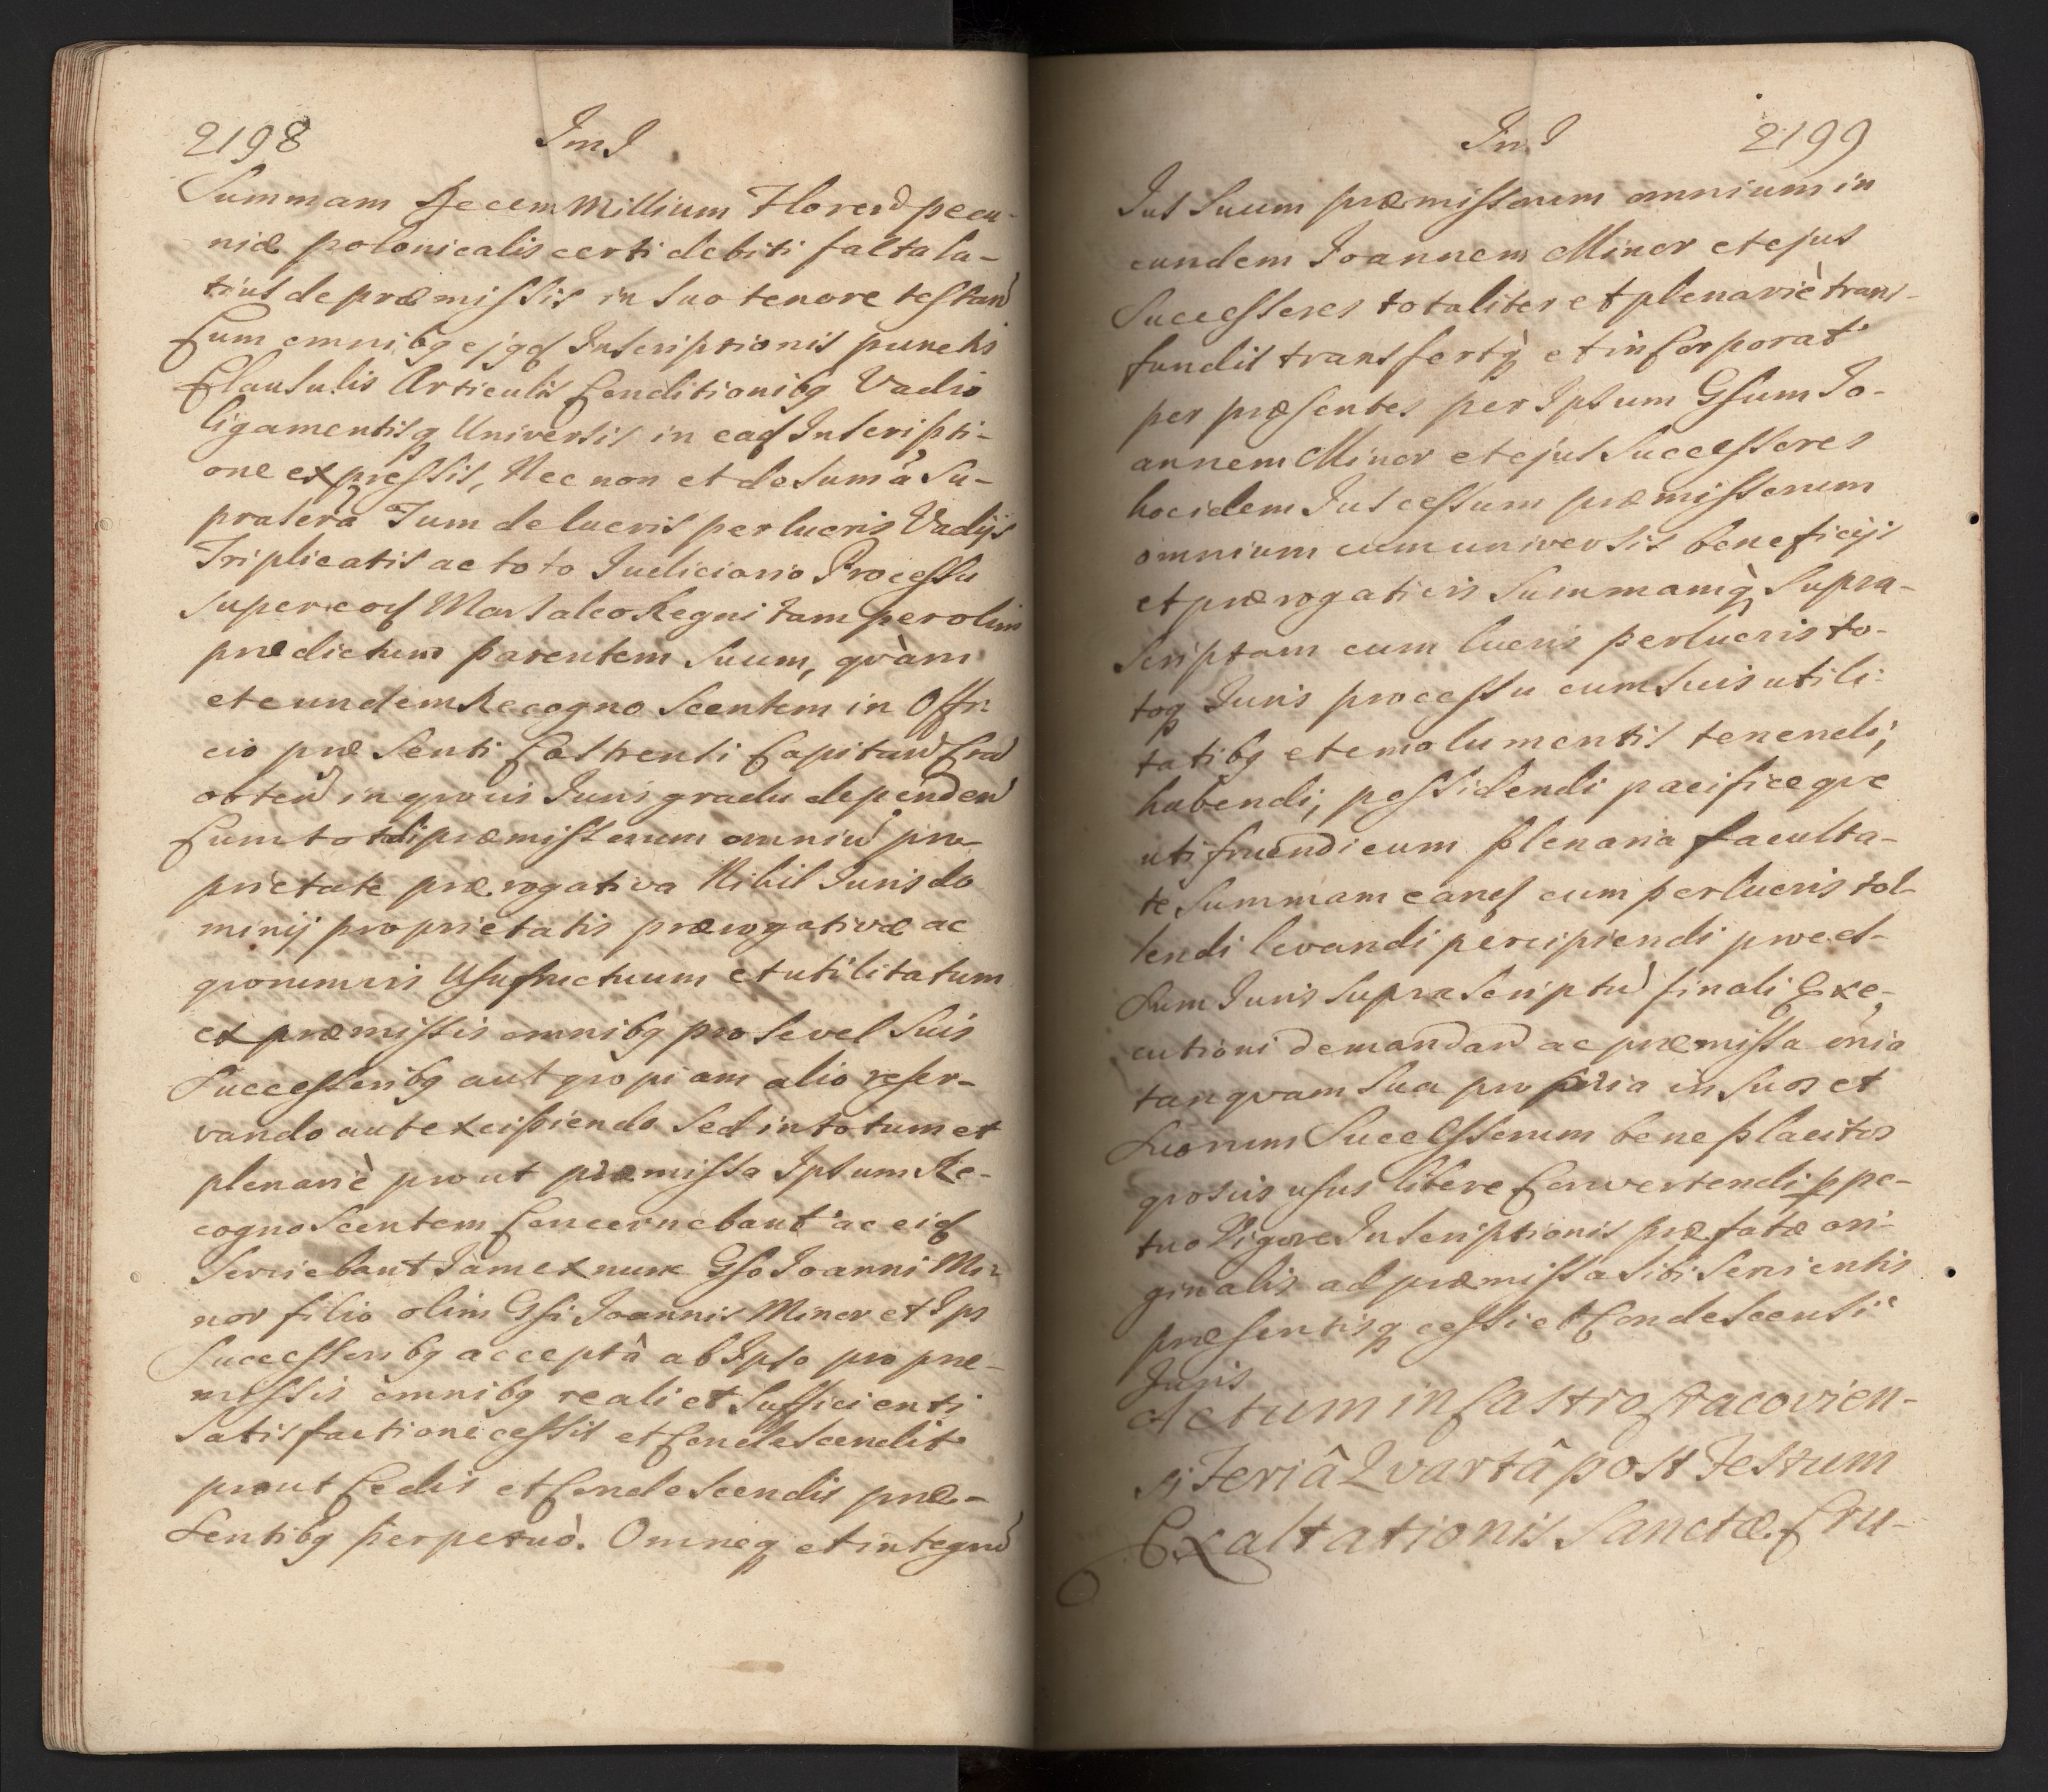 2198 Im I
Summam decem Millium Floren̄ pecu-
niæ polonicalis certi debiti facta la-
tius de præmissis in suo tenore testan̄
Cum omnibq ejqd Inscriptionis punctis
Clausulis Articulis Conditionibq Vadio
ligamentisq Universis in eaqd Inscripti-
one expressis, Nec non et de sum̄a Su-
prascrā Tum de lucris perlucris Vadijs
Triplicatis ac toto Judiciario Processu
super eoqd Marsalco Regni tam per olim
prædictum parentem suum, qvàm
et eundem Recognoscentem in Offi-
cio præsenti Castrensi Capitan̄ Cra̅
obten̄ in qvovis Juris gradu dependen̄
Cum tota præmissorum omniū pro-
prietate prærogativa Nihil Juris do
minij proprietatis prærogativæ ac
qvorumvis Usufructuum et utilitatum
ex præmissis omnibq pro se vel suis
Successoribq aut qvopiam alio reser-
vando aut excipiendo sed in totum et
plenariè prout præmissa Ipsum Re-
cognoscentem Concernebant ac eiqd
Serviebant Jam ex nunc Gso Joanni Mi-
nor filio olim Gsi Joannis Minor et Ips
Successoribq acceptâ ab Ipso pro præ-
missis omnibq reali et sufficienti
satisfactione cessit et Condescendit
prout Cedit et Condescendit præ-
sentibq perpetuò. Omneq et integrū
Im I 2199
Jus suum præmissorum omnium in
eundem Joannem Minor et ejus
Successores totaliter et plenariè trans-
fundit transfertq̀ et inCorporat
per præsentes per Ipsum Gsum Jo-
annem Minor et ejus Successores
hoc idem Jus cessum præmissorum
omnium cum universis beneficijs
et prærogativis Summamq̀ supra-
scriptam cum lucris perlucris to-
toq Juris processu cum suis utili-
tatibq et emolumentis tenendi,
habendi, possidendi pacificeqve
utifruendi cum plenaria faculta-
te Summam eanqd cum perlucris tol-
lendi levandi percipiendi proces-
sum Juris suprascriptū finali Exe-
cutioni demandan̄ ac præmissa om̄ia
tanqvam sua propria in suos et
suorum Successorum beneplacitos
qvosvis usus libere Convertendi ppe-
tuo Vigore Inscriptionis præfatæ ori-
ginalis ad præmissa sibi servientis
præsentisq cessi et Condescensi
Juris
Actum in Castro Cracovien-
si Feriâ Qvartâ post Festum
Exaltationis Sanctæ Cru-